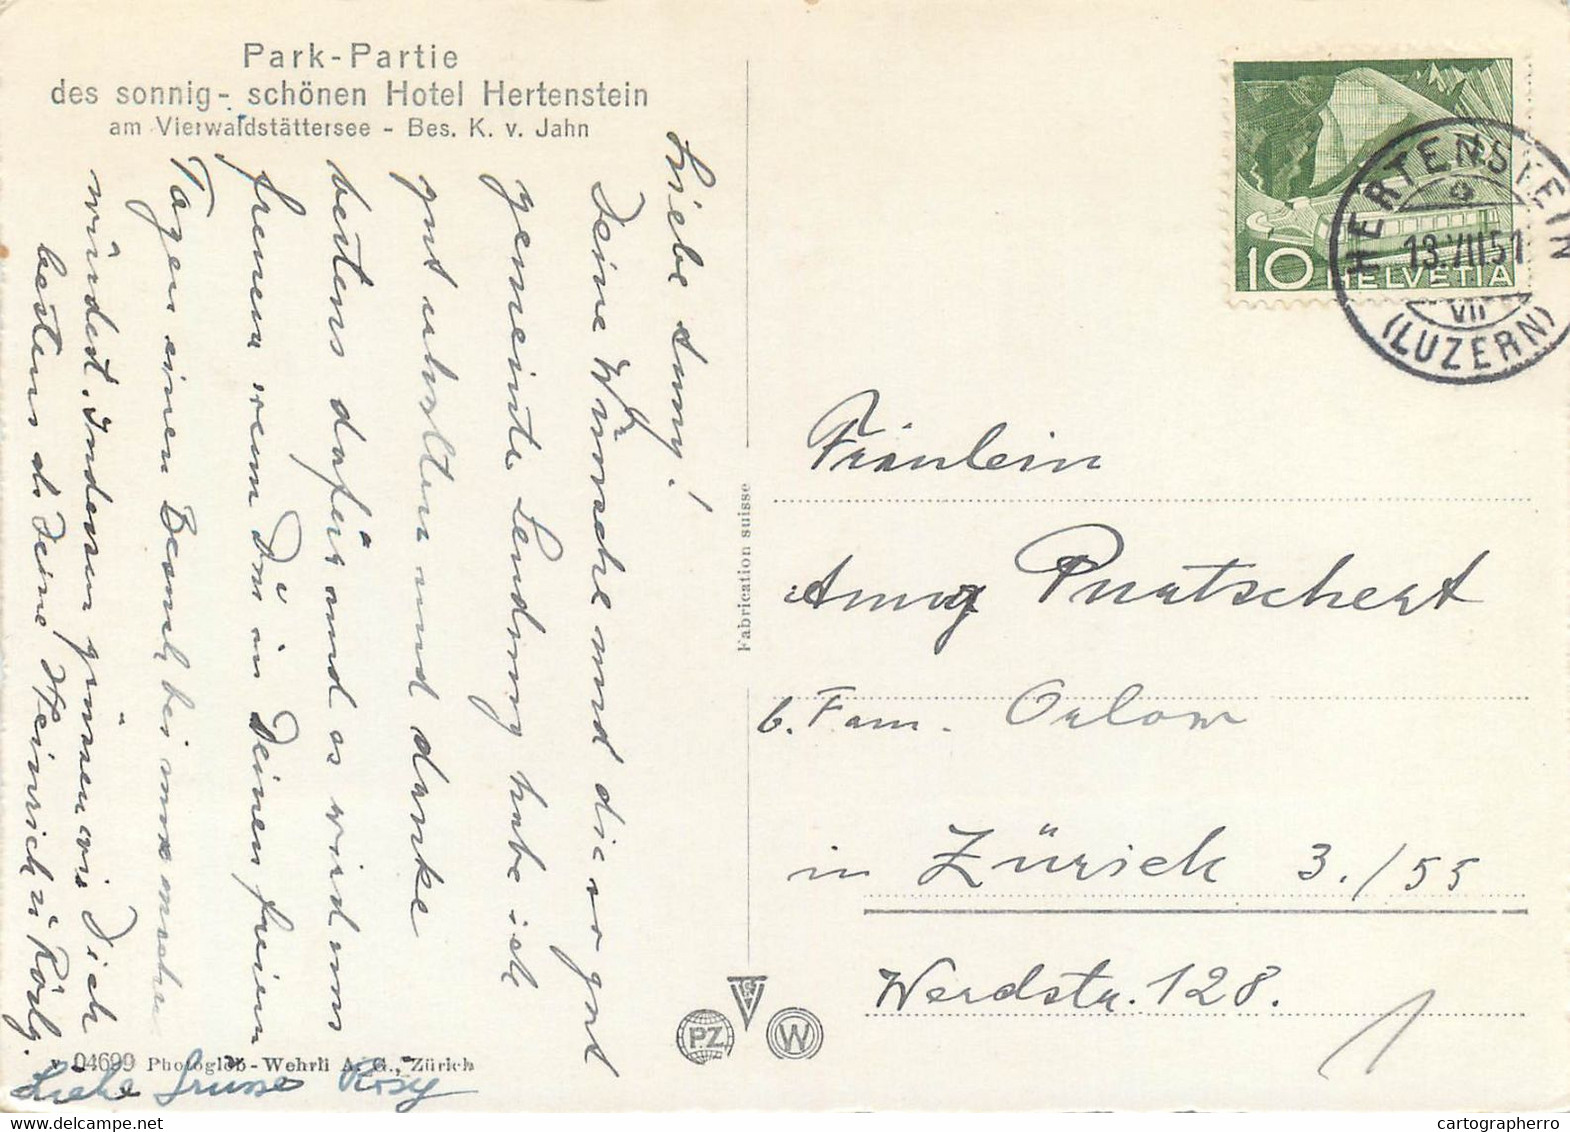 Park-Partie
des sonnig-schönen Hotel Hertenstein
am Vierwaldstättersee - Bes. K. v. Jahn
Liebe Anny!
Deine Wünsche und die so gut
gemeinte Sendung habe ich
gut erhalten und danke
bestens dafür und es wird uns
freuen wenn Du in Deinen freien
Tagen einen Besuch bei uns machen
würdest. Indessen grüssen wir Dich
bestens als Deine Heinrich u.
Liebe Grüsse Rosy
04699 Photoglob-Wehrli A. G., Zürich
Fabrication suisse
PZ
W
10
HELVETIA
HERTENSTEIN
a
13.VII.51
VII
(LUZERN)
Fräulein
Anny Purtschert
b. Fam. Orlow
in Zürich 3./55
Werdstr. 128.
1
cartographerro